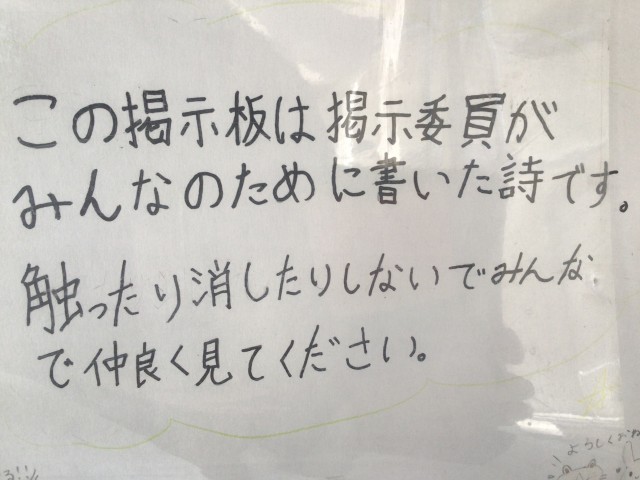 この掲示板は掲示委員が
みんなのために書いた詩です。
触ったり消したりしないでみんな
で仲良く見てください。